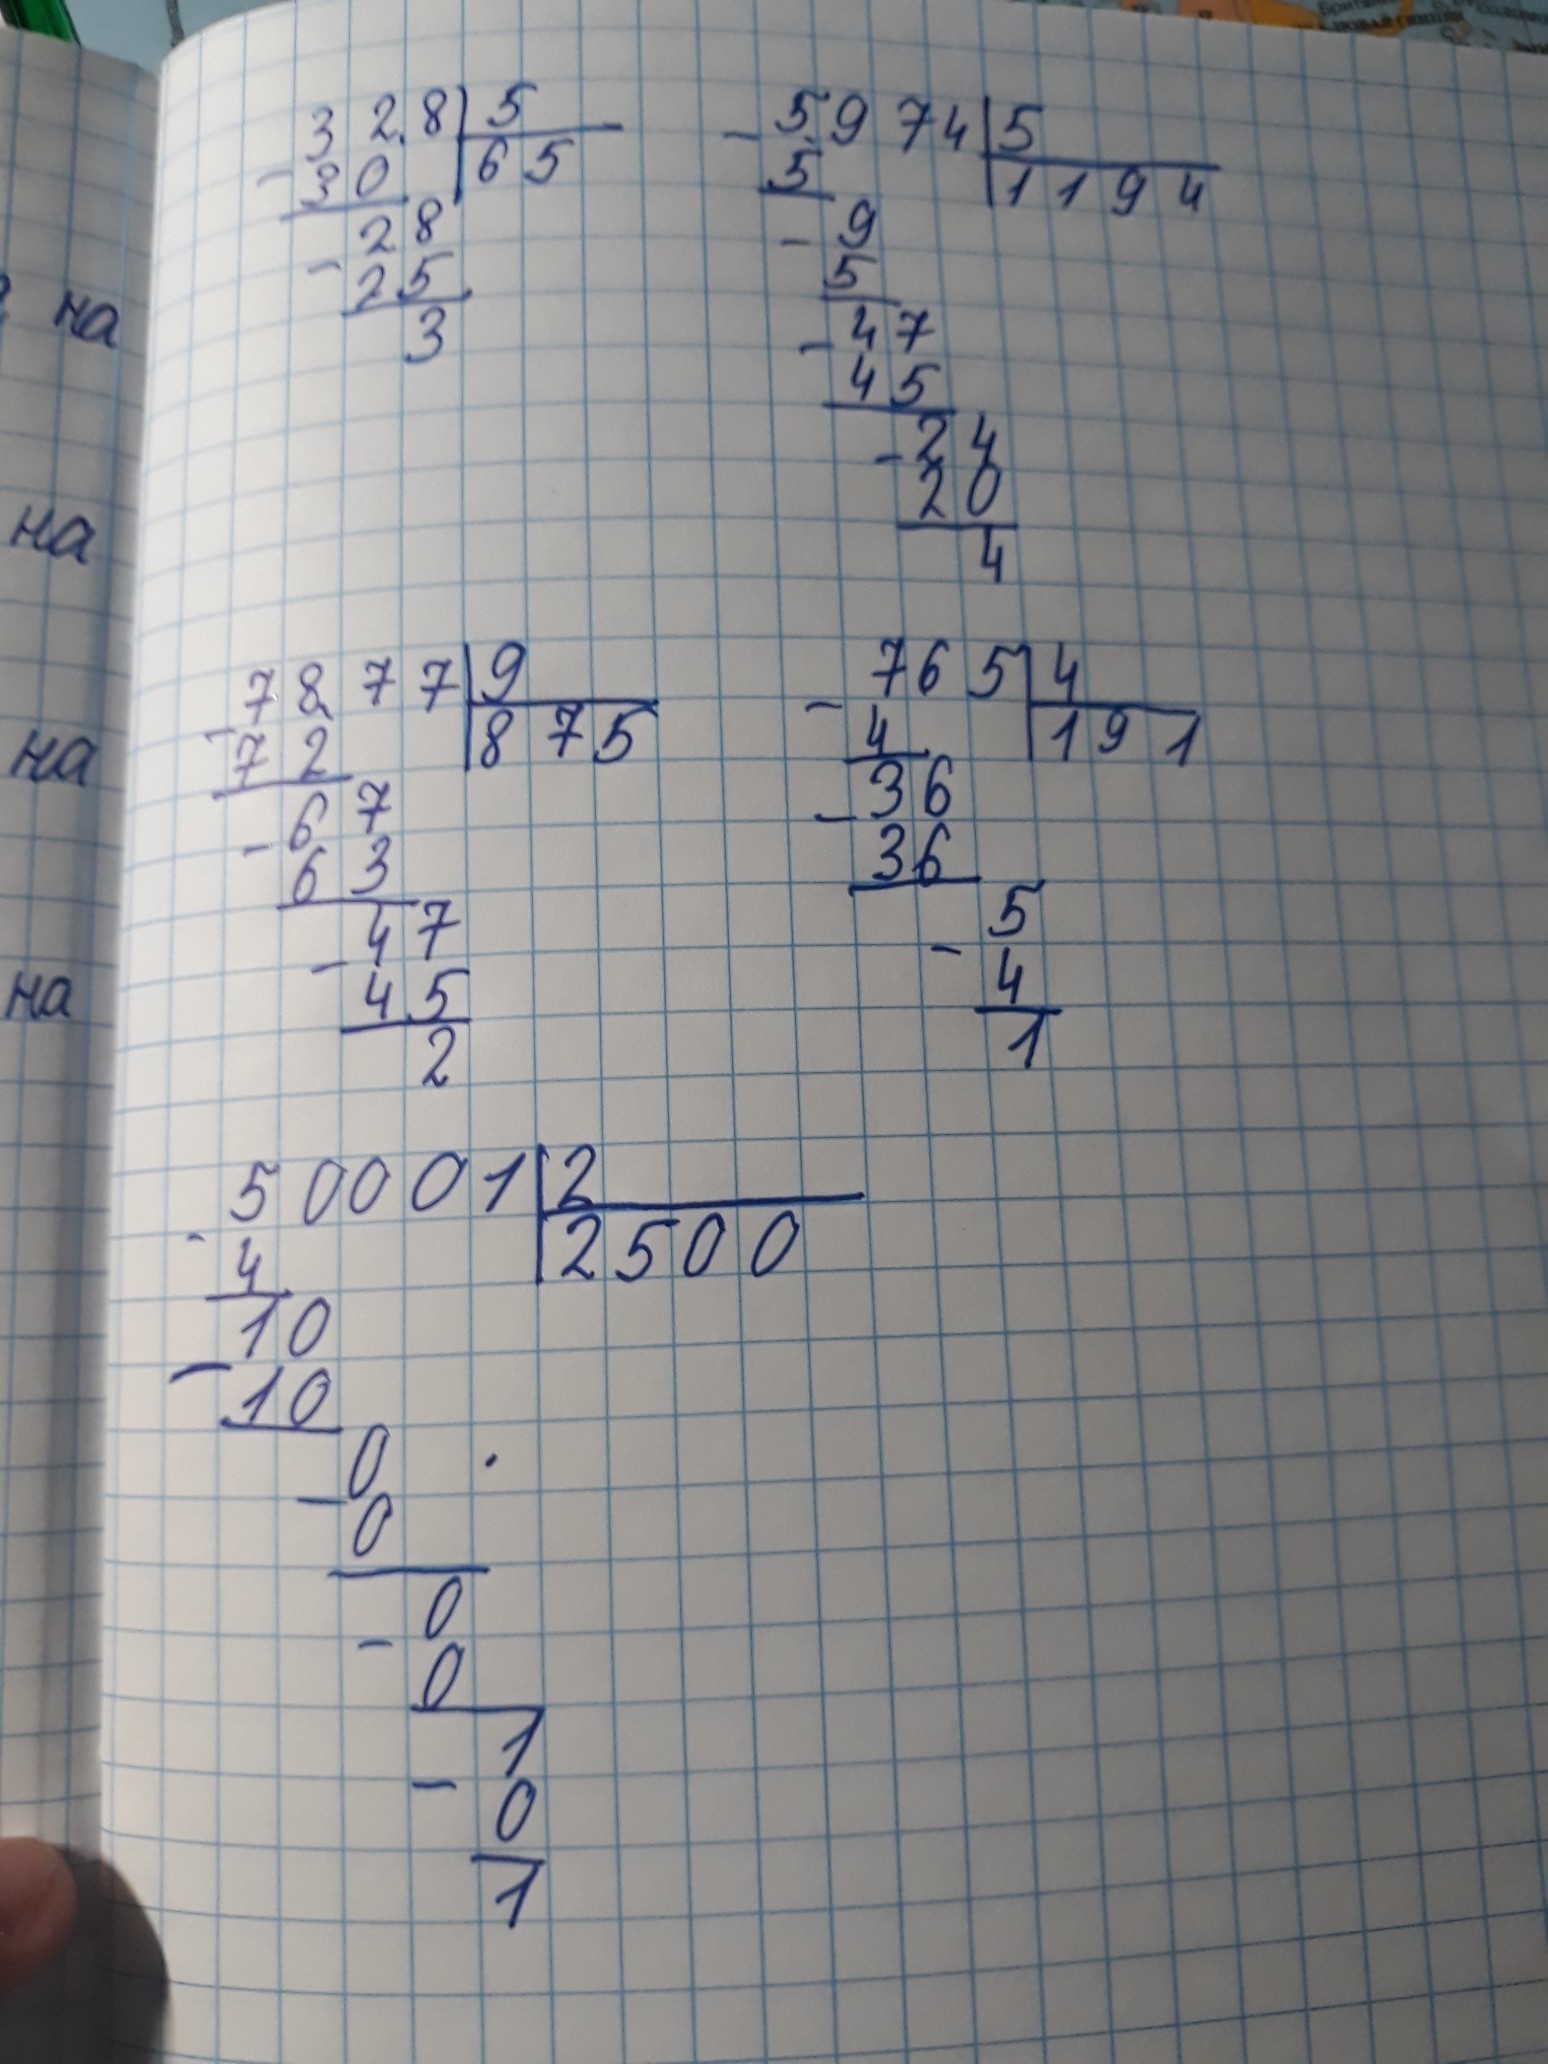 328 5
- 30 65
- 28
25
3
- 5974 5
5 1194
- 9
5
- 47
45
- 24
20
4
- 7877 9
72 875
- 67
63
- 47
45
2
- 765 4
4 191
- 36
36
- 5
4
1
- 50001 2
4 2500
10
- 10
0
- 0
0
- 0
1
- 0
1
на
на
на
на